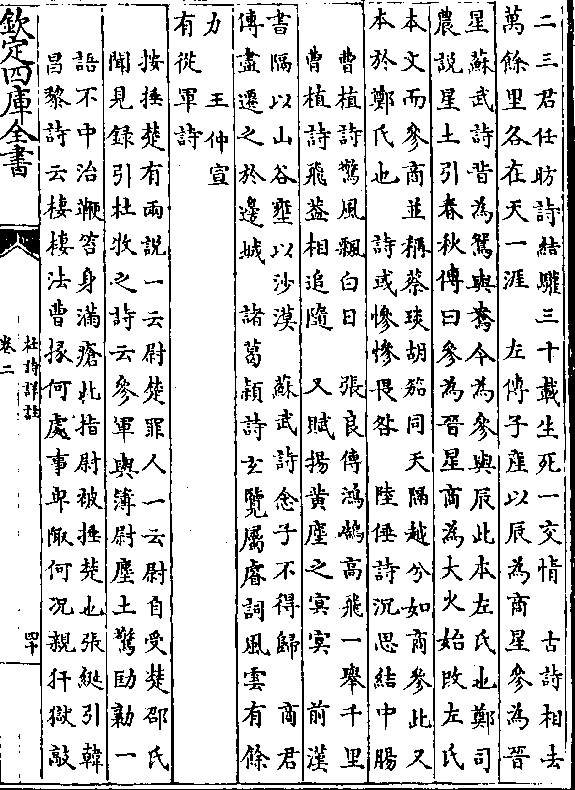 二三君任昉詩結驩三十載生死一交情　古詩相去
萬餘里各在天一涯　左傳子産以辰為商星參為晉
星蘇武詩昔為鴛與鴦今為參與辰此本左氏也鄭司
農說星土引春秋傳曰參為晉星商為大火始改左氏
本文而參商並稱蔡琰胡笳同天隔越兮如商參此又
本於鄭氏也　詩或慘慘畏咎　陸倕詩沉思結中腸
曹植詩驚風飄白日　張良傳鴻鵠高飛一舉千里
曹植詩飛葢相追隨　又賦揚黄塵之㝠㝠　前漢
書隔以山谷壅以沙漠　蘇武詩念子不得歸　商君
傳盡遷之於邊城　諸葛穎詩玄覽屬睿詞風雲有餘
力　王仲宣
有從軍詩
按捶楚有兩說一云尉楚罪人一云尉自受楚邵氏
聞見錄引杜牧之詩云參軍與簿尉塵土驚劻勷一
語不中治鞭笞身滿瘡此指尉被捶楚也張綖引韓
昌黎詩云棲棲法曹掾何處事卑陬何況親犴獄敲
欽定四庫全書
杜詩詳註
卷二
四十